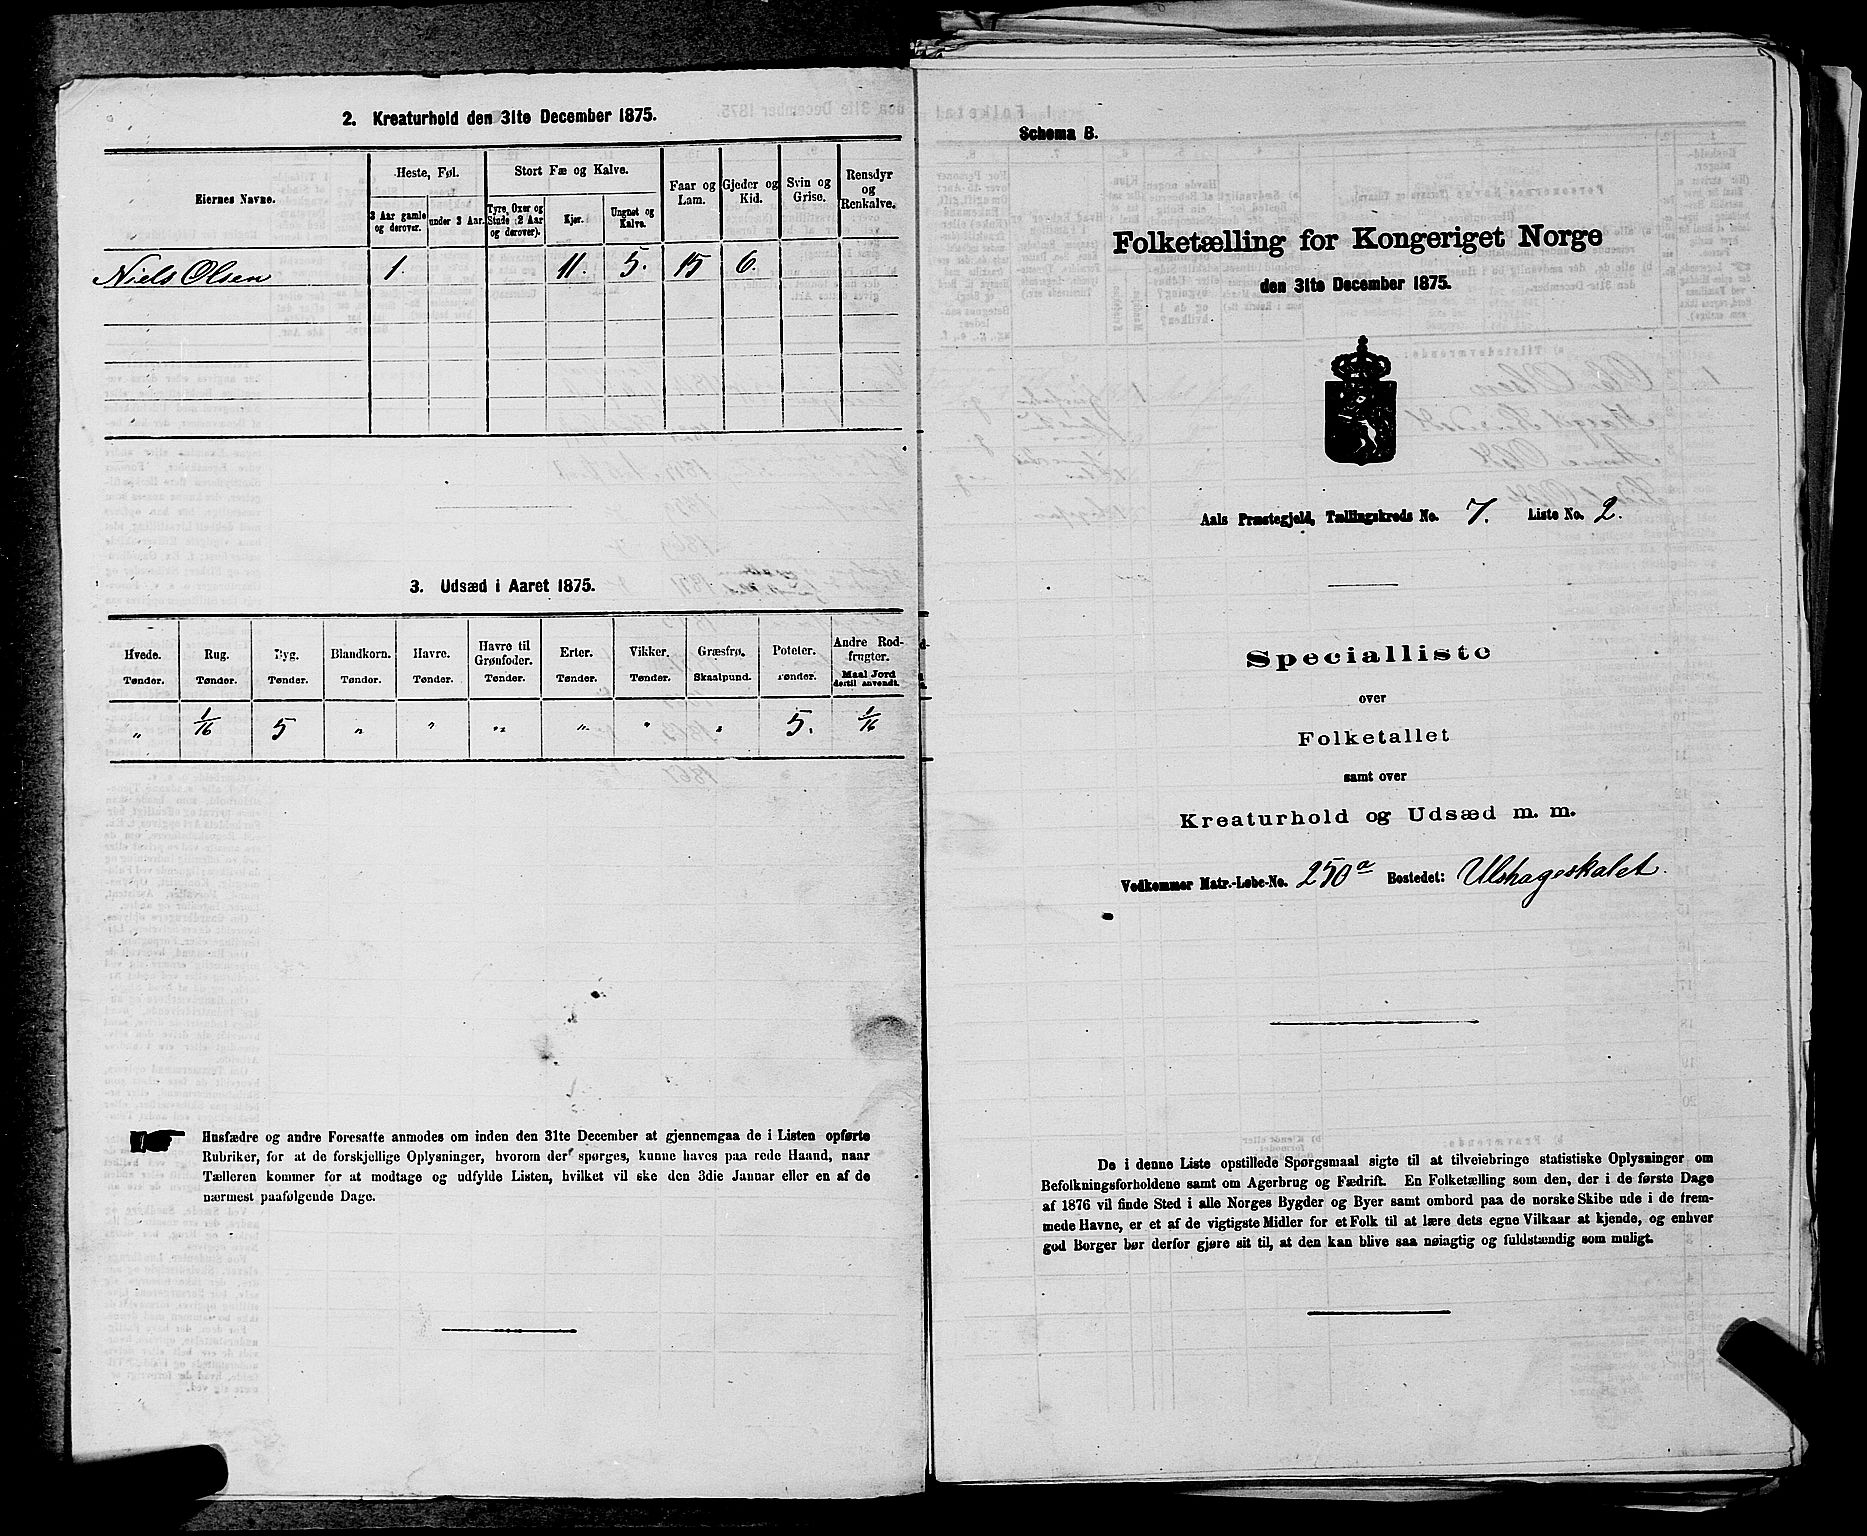 2. Kreaturhold den 31te December 1875.
Eiernes Navne.
Heste, Føl.
3 Aar gamle og derover.
under 3 Aar.
Stort Fæ og Kalve.
Tyre, Oxer og Stude (2 Aar og derover).
Kjør.
Ungnøt og Kalve.
Faar og Lam.
Gjeder og Kid.
Svin og Grise.
Rensdyr og Renkalve.
Niels Olsen 1. 11. 5. 15 6.
3. Udsæd i Aaret 1875.
Hvede. Tønder.
Rug. Tønder.
Byg. Tønder.
Blandkorn. Tønder.
Havre. Tønder.
Havre til Grønfoder. Tønder.
Erter. Tønder.
Vikker. Tønder.
Græsfrø. Skaalpund.
Poteter. Tønder.
Andre Rodfrugter. Maal Jord dertil anvendt.
" 1/16 5 " " " " " " 5. 1/16
Husfædre og andre Foresatte anmodes om inden den 31te December at gjennemgaa de i Listen opførte
Rubriker, for at de forskjellige Oplysninger, hvorom der spørges, kunne haves paa rede Haand, naar
Tælleren kommer for at modtage og udfylde Listen, hvilket vil ske den 3die Januar eller en af de
nærmest paafølgende Dage.
Schema B.
Folketælling for Kongeriget Norge
den 31te December 1875.
Aals Præstegjeld, Tællingskreds No. 7. Liste No. 2.
Specialliste
over
Folketallet
samt over
Kreaturhold og Udsæd m. m.
Vedkommer Matr.-Løbe-No. 250a Bostedet: Ulshageskalet.
De i denne Liste opstillede Spørgsmaal sigte til at tilveiebringe statistiske Oplysninger om
Befolkningsforholdene samt om Agerbrug og Fædrift. En Folketælling som den, der i de første Dage
af 1876 vil finde Sted i alle Norges Bygder og Byer samt ombord paa de norske Skibe ude i de frem-
mede Havne, er et af de vigtigste Midler for et Folk til at lære dets egne Vilkaar at kjende, og enhver
god Borger bør derfor gjøre sit til, at den kan blive saa nøiagtig og fuldstændig som muligt.